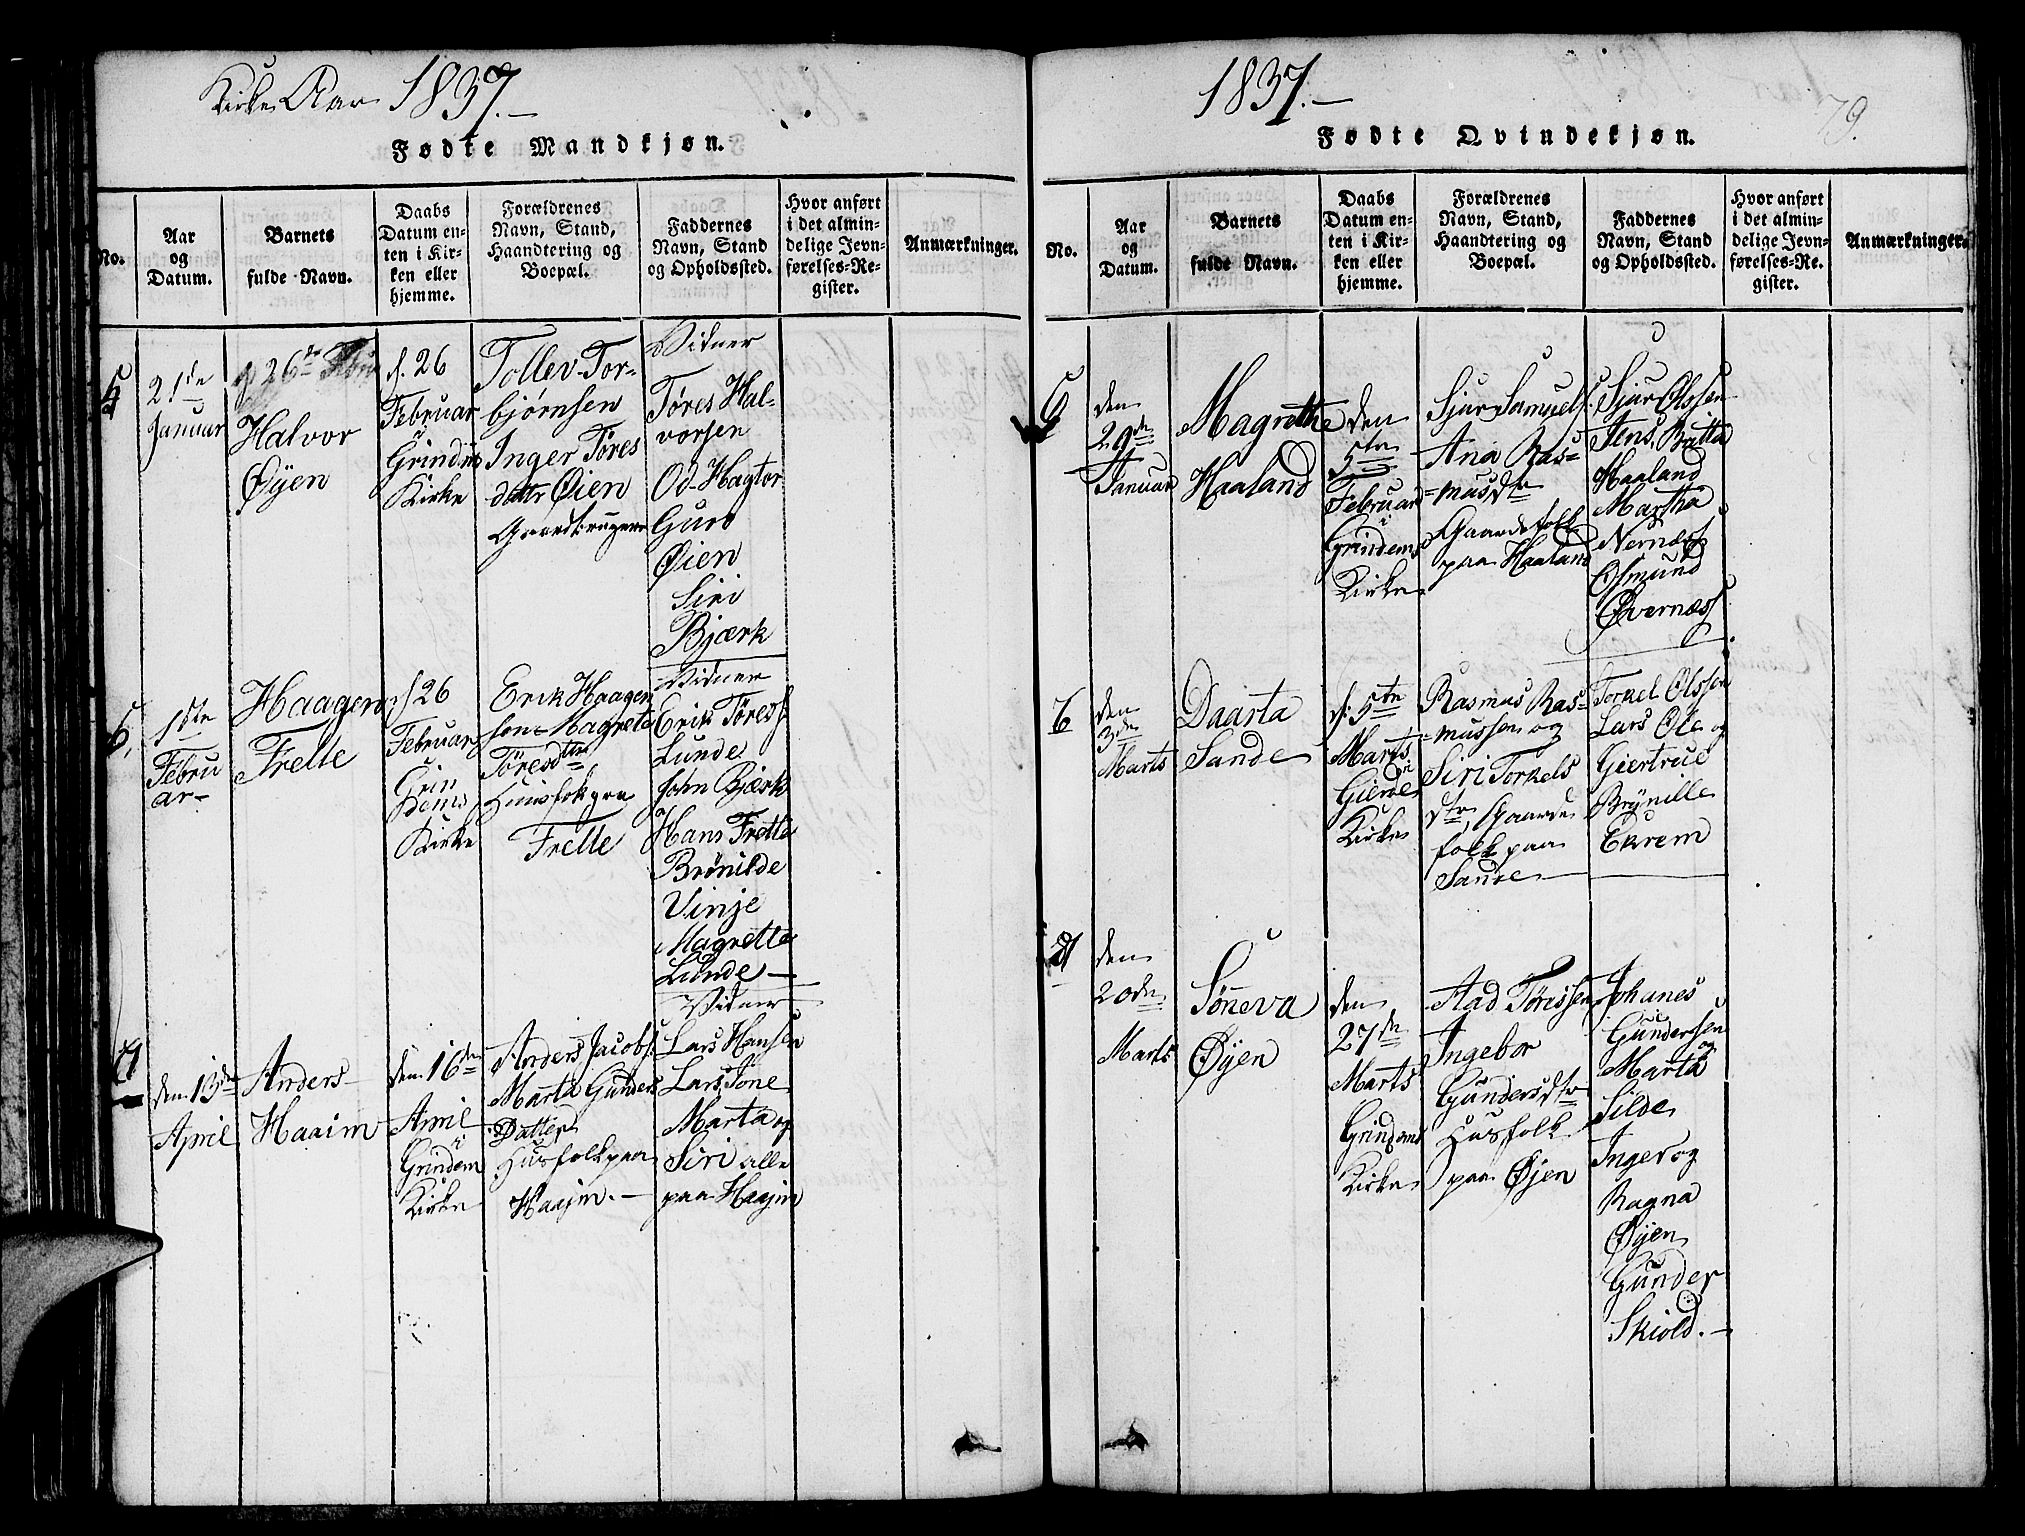 Kirke Aar 1837.
Fødte Mandkjøn.
No.
Aar
og
Datum.
Barnets
fulde Navn.
Daabs
Datum en-
ten i Kir-
ken eller
hjemme.
Forældrenes
Navn, Stand,
Haandtering og
Boepæl.
Faddernes
Navn, Stand
og Opholdssted.
Hvor anført
i det almin-
delige Jevn-
førelses-Re-
gister.
Anmærkninger.
21de
Januar
Halvor
Øyen
d. 26
Februar
i
Kirke
Tollev Tor-
bjørnsen
Inger Tøres
dattr Øien
Gaardbrugere
Vidner
Tøres Hal-
vorsen
Od- Hagtor
Guro
Øien
Siri
Bjærk
1ste
Febru
ar
Haagen
Frette
d 26
Februar
i
Grin
dems
Kirke
Erik Haagen
sen Magreta
Tøresdtr
Huusfolk paa
Frette
Vidner
Erik Tøress.
Lunde
John Bjærk
Hans Frette
Brønilde
Vinje
Magrette
Lunde
7
den 13de
April
Anders
Haaim
den 16de
April
i
Grindem
Kirke
Anders Jacobs.
Marta Gunders
Datter
Husfolk paa
Haajm.
Vidner
Lars Hansen
Lars, Tone
Marta og
Siri alle
paa Haajm
1837.
79.
Fødte Qvindekjøn.
No.
Aar
og
Datum.
Barnets
fulde Navn.
Daabs
Datum en-
ten i Kir-
ken eller
hjemme.
Forældrenes
Navn, Stand,
Haandtering og
Boepæl.
Faddernes
Navn, Stand
og Opholdssted.
Hvor anført
i det almin-
delige Jevn-
førelses-Re-
gister.
Anmærkninger.
5
den
29de
Januar
Magrethe
Haaland
den
5te
Februar
i
Grindems
Kirke
Sjur Samuels.
Ana Ras-
musdtr
Gaardsfolk
paa Haaland
Sjur Olssen
Jens, Britta
Haaland
Martha
Nernæss
Osmund
Øvernæss
6
den
3de
Marts
Daarta
Sande
d: 5te
Marts
i
Kirke
Rasmus Ras-
mussen og
Siri Torkels
dtr, Gaards
folk paa
Sande
Torkel Olssen
Lars Ole og
Giertrue
Brynille
Ekrem
7
den
20de
Marts
Søneva
Øyen
den
27de
Marts
Grindems
Kirke
Aad Tøressen
Ingebor
Gundersdtr
Husfolk
paa Øjen
Johanes
Gundersen
og
Marta
Silde
Inger og
Ragna
Øyen
Gunder
Skiold.